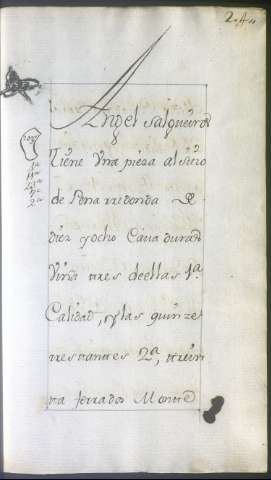 2. A.
Angel Salgueiro
Tiene Vna pieza al sitio
de Pena rredonda
diez y ocho Cauaduras
Viña tres de ellas 1.ª
Calidad, y las quinze
rrestantes 2.ª, trein
ta ferrados Monte
1ª
2ª